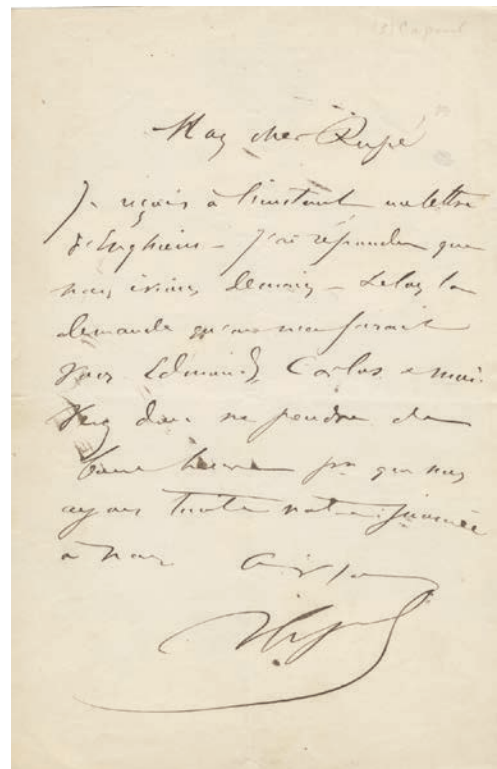 Mon cher Rupé
Je reçois à l'instant une lettre
d'Enghien – J'ai répondu que
nous irions demain – selon la
demande qu'on nous faisait
pour Edmond, Carlos & moi.
donc me prendre de
bonne heure pr que nous
ayons toute notre journée
à nous